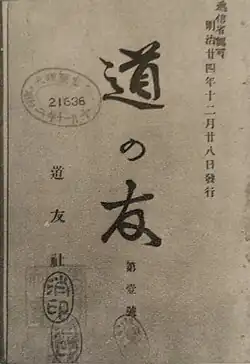 逓信省認可
明治廿四年十二月廿八日發行
道の友
第壹號
道友社
21636
消印